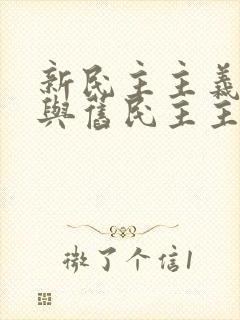 新民主主義
與舊民主主
微了个信1